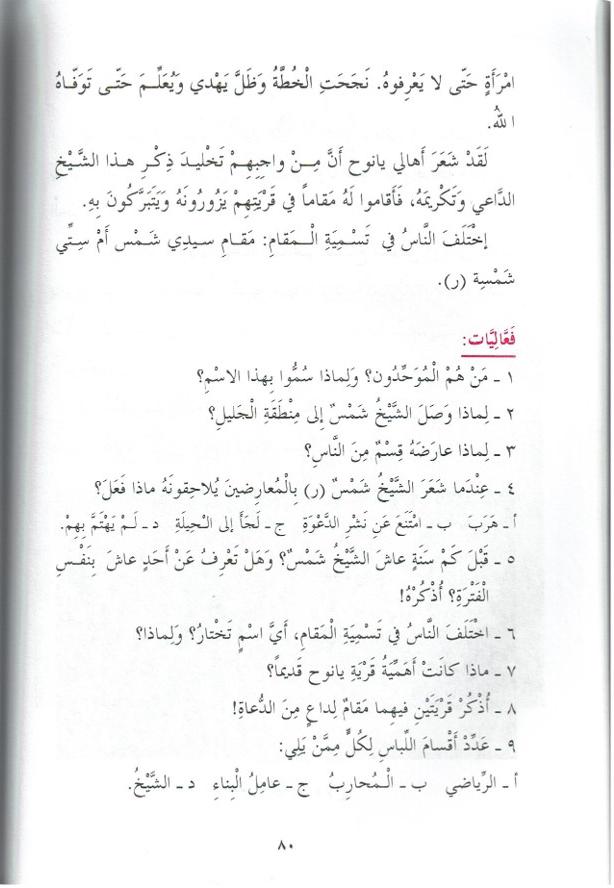 امْرَأَةٍ حَتّى لا يَعْرِفوهُ. نَجَحَتِ الْخُطَّةُ وَظَلَّ يَهْدي وَيُعَلِّـمَ حَتّـى تَوَفّـاهُ
اللهُ.
لَقَدْ شَعَرَ أَهالي يانوح أَنَّ مِـنْ واجِبِهِـمْ تَخْليـدَ ذِكْـرِ هـذا الشَّـيْخِ
الدّاعي وَتَكْريمَهُ، فَأَقاموا لَهُ مَقاماً في قَرْيَتِهِمْ يَزُورُونَهُ وَيَتَبَرَّكُونَ بِهِ.
إخْتَلَفَ النَّاسُ في تَسْمِيَةِ الْـمَقامِ: مَقـامِ سـيدي شَـمْسٍ أَمْ سِـتّي
شَمْسِة (ر).
فَعَّالِيَّات:
١ ـ مَنْ هُمْ الْمُوَحِّدُون؟ وَلِماذا سُمُّوا بِهذا الاسْمِ؟
٢ ـ لِماذا وَصَلَ الشَّيْخُ شَمْسٌ إلى مِنْطَقَةِ الْجَليلِ؟
٣ ـ لِماذا عارَضَهُ قِسْمٌ مِنَ النَّاسِ؟
٤ ـ عِنْدَما شَعَرَ الشَّيْخُ شَمْسٌ (ر) بِالْمُعارِضينَ يُلاحِقونَهُ ماذا فَعَلَ؟
أ ـ هَرَبَ ب ـ امْتَنَعَ عَنِ نَشْرِ الدَّعْوَةِ ج ـ لَجَأَ إلى الْحيلَةِ د ـ لَـمْ يَهْتَمَّ بِهِمْ.
٥ ـ قَبْلَ كَمْ سَنَةٍ عاشَ الشَّيْخُ شَمْسٌ؟ وَهَلْ تَعْرِفُ عَنْ أَحَدٍ عاشَ بِنَفْسِ
الْفَتْرَةِ؟ أُذْكُرْهُ!
٦ ـ اخْتَلَفَ النَّاسُ في تَسْمِيَةِ الْمَقامِ، أَيَّ اسْمٍ تَخْتارُ؟ وَلِماذا؟
٧ ـ ماذا كانَتْ أَهَمِّيَّةُ قَرْيَةِ يانوح قَديماً؟
٨ ـ أُذْكُرْ قَرْيَتَيْنِ فيهِما مَقامٌ لِداعٍ مِنَ الدُّعاةِ!
٩ ـ عَدِّدْ أَقْسامَ اللِّباسِ لِكُلٍّ مِمَّنْ يَلِي:
أ ـ الرِّياضي ب ـ الْـمُحارِبُ ج ـ عامِلُ الْبِناءِ د ـ الشَّيْخُ.
٨٠